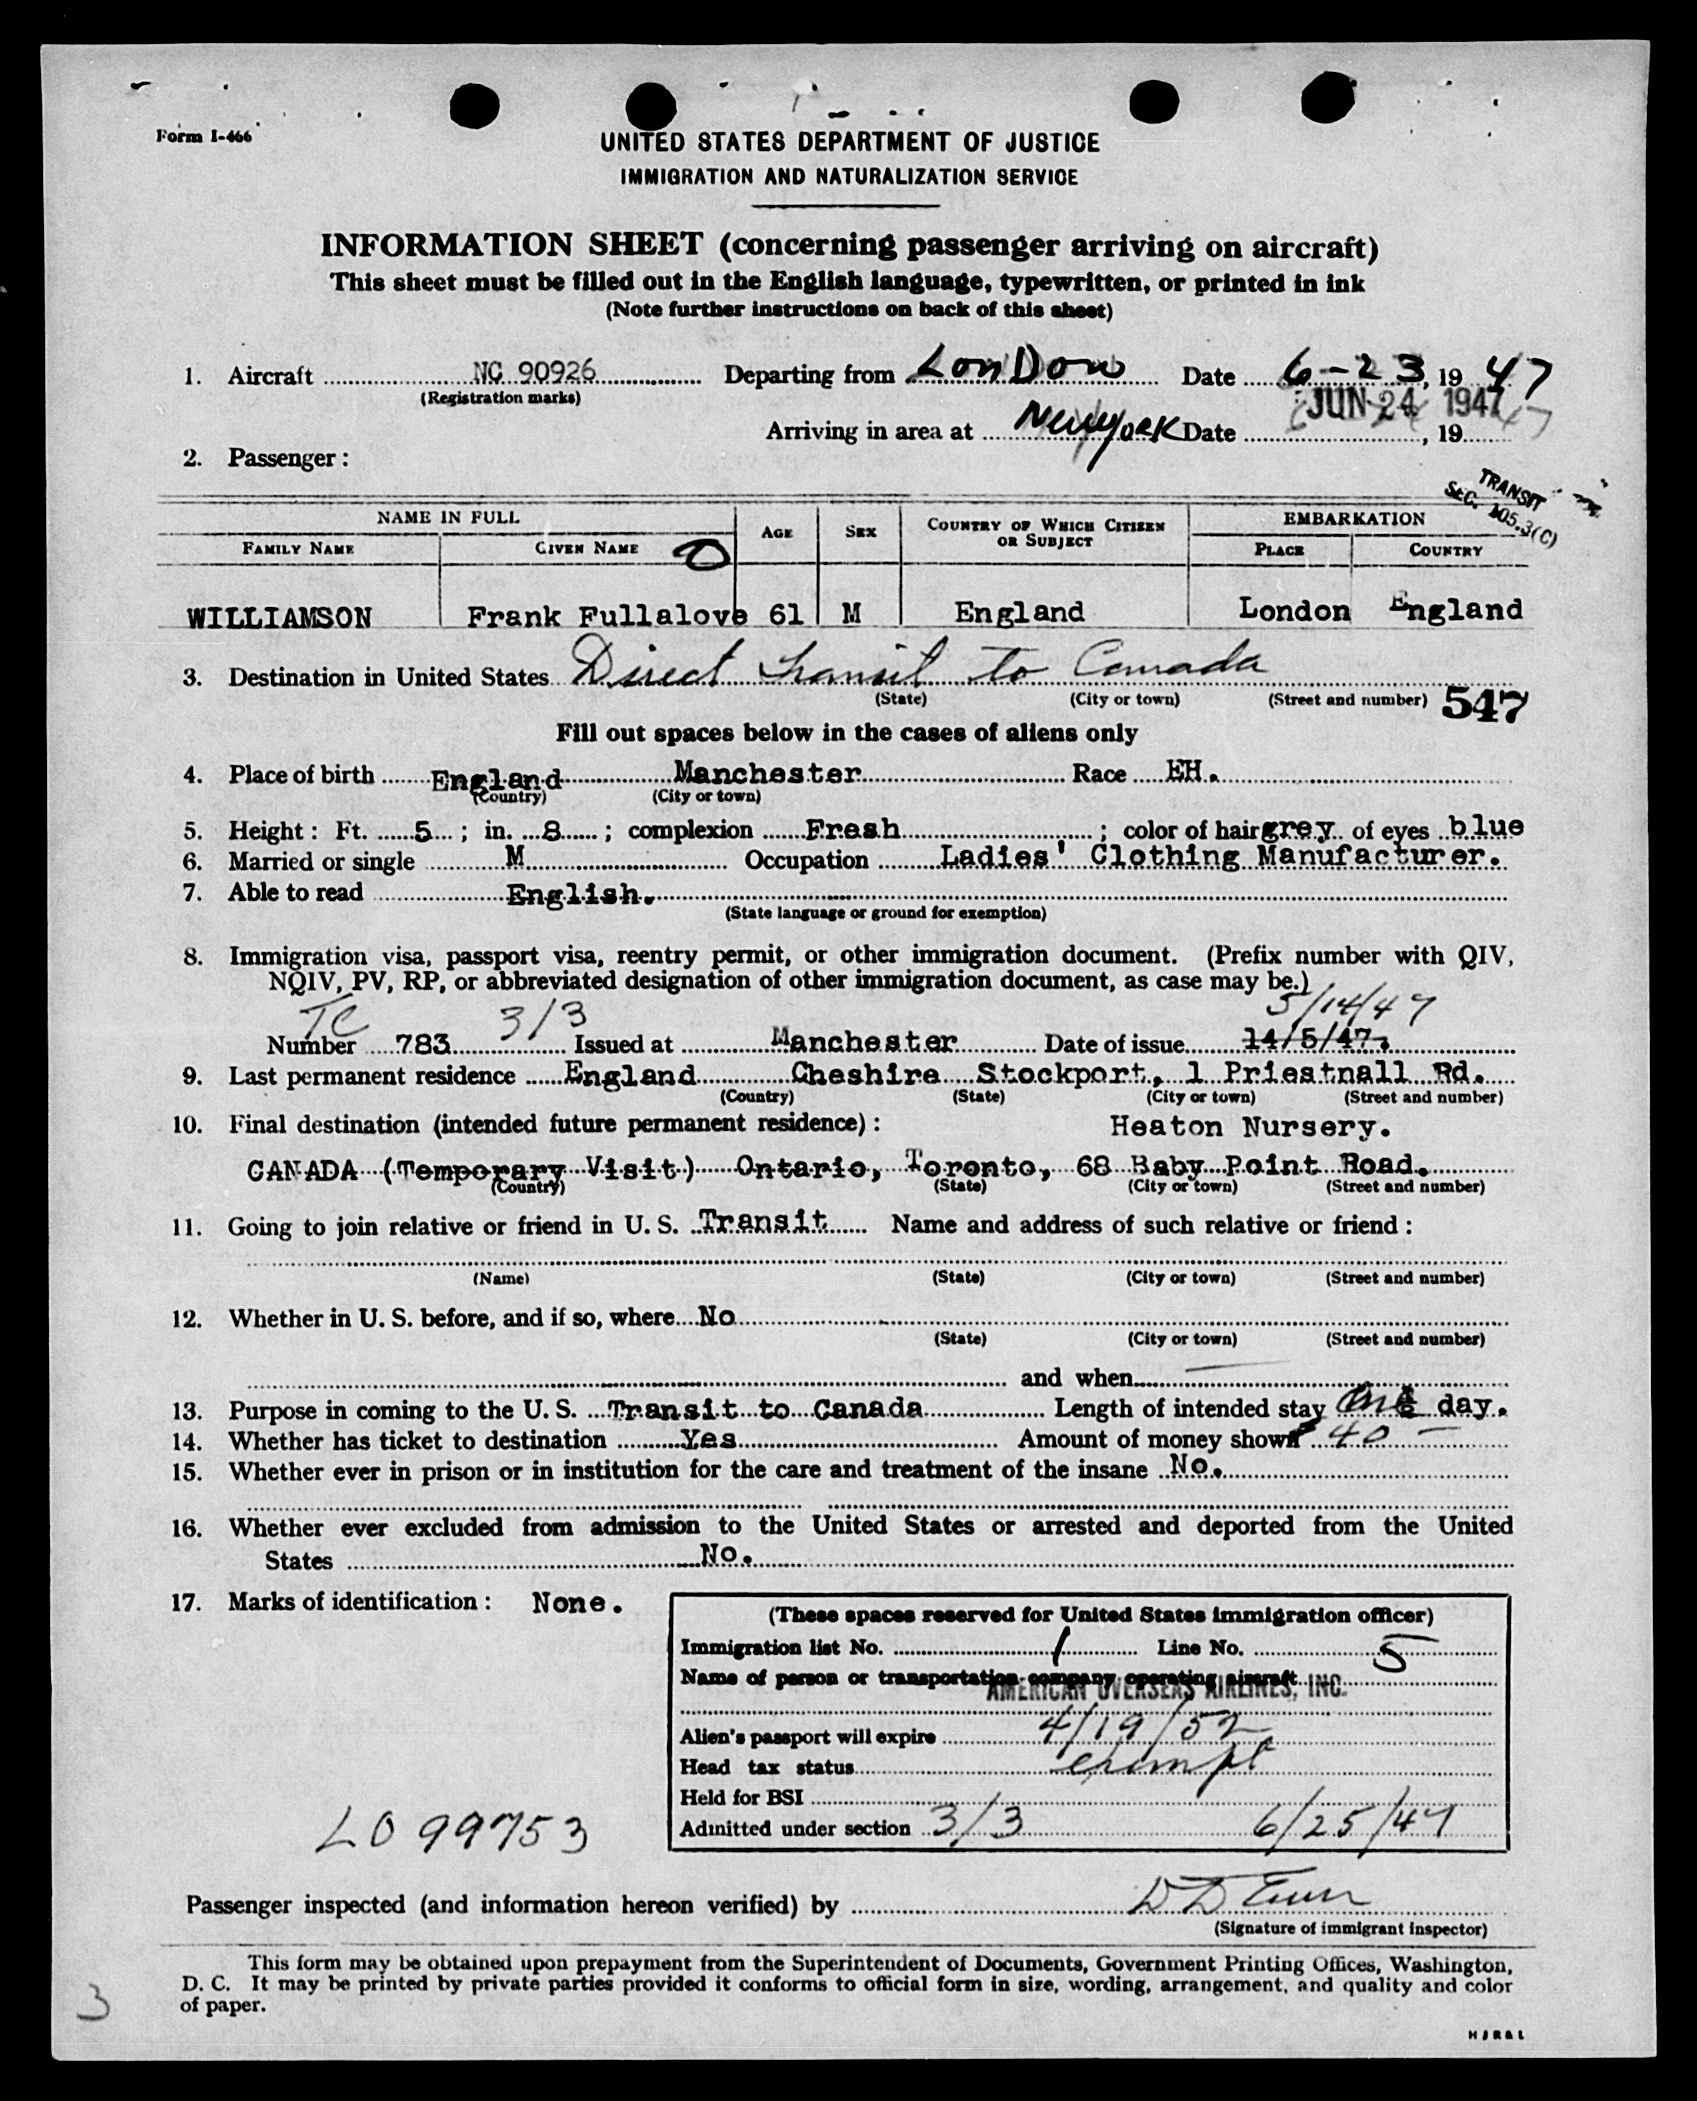 Form I-466
UNITED STATES DEPARTMENT OF JUSTICE
IMMIGRATION AND NATURALIZATION SERVICE
INFORMATION SHEET (concerning passenger arriving on aircraft)
This sheet must be filled out in the English language, typewritten, or printed in ink
(Note further instructions on back of this sheet)
1. Aircraft NC 90926 Departing from LonDon Date 6-23, 19 47
(Registration marks)
JUN 24 1947
Arriving in area at New York Date , 19
2. Passenger:
TRANSIT
SEC. 105.3(C)
NAME IN FULL AGE SEX COUNTRY OF WHICH CITIZEN OR SUBJECT EMBARKATION
FAMILY NAME GIVEN NAME PLACE COUNTRY
WILLIAMSON Frank Fullalove 61 M England London England
3. Destination in United States Direct transit to Canada
(State) (City or town) (Street and number) 547
Fill out spaces below in the cases of aliens only
4. Place of birth England Manchester Race EH.
(Country) (City or town)
5. Height: Ft. 5; in. 8; complexion Fresh; color of hair grey of eyes blue
6. Married or single M Occupation Ladies' Clothing Manufacturer.
7. Able to read English.
(State language or ground for exemption)
8. Immigration visa, passport visa, reentry permit, or other immigration document. (Prefix number with QIV,
NQIV, PV, RP, or abbreviated designation of other immigration document, as case may be.)
TC 3/3 5/14/47
Number 783 Issued at Manchester Date of issue 14/5/47.
9. Last permanent residence England Cheshire Stockport, 1 Priestnall Rd.
(Country) (State) (City or town) (Street and number)
10. Final destination (intended future permanent residence): Heaton Nursery.
CANADA (Temporary Visit) Ontario, Toronto, 68 Baby Point Road.
(Country) (State) (City or town) (Street and number)
11. Going to join relative or friend in U. S. Transit Name and address of such relative or friend:
(Name) (State) (City or town) (Street and number)
12. Whether in U. S. before, and if so, where No
(State) (City or town) (Street and number)
and when
13. Purpose in coming to the U. S. Transit to Canada Length of intended stay one day.
14. Whether has ticket to destination Yes Amount of money shown 40 -
15. Whether ever in prison or in institution for the care and treatment of the insane No.
16. Whether ever excluded from admission to the United States or arrested and deported from the United
States No.
17. Marks of identification: None.
(These spaces reserved for United States immigration officer)
Immigration list No. 1 Line No. 5
Name of person or transportation company operating aircraft
AMERICAN OVERSEAS AIRLINES, INC.
Alien's passport will expire 4/19/52
Head tax status exempt
Held for BSI
Admitted under section 3/3 6/25/47
LO 99753
Passenger inspected (and information hereon verified) by
(Signature of immigrant inspector)
This form may be obtained upon prepayment from the Superintendent of Documents, Government Printing Offices, Washington,
D. C. It may be printed by private parties provided it conforms to official form in size, wording, arrangement, and quality and color
of paper.
3
H J R & L